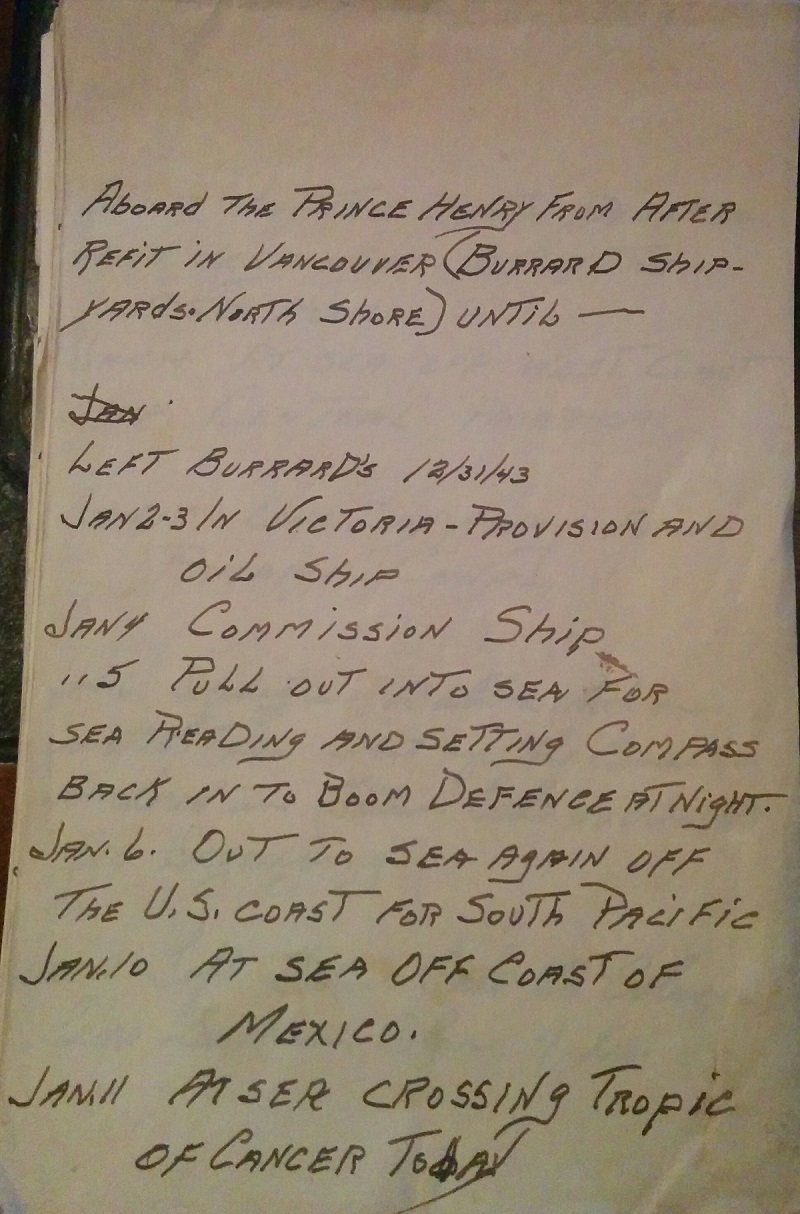 Aboard The Prince Henry From After
Refit in Vancouver (Burrard Ship-
yards. North Shore) until —
Jan
Left Burrard's 12/31/43
Jan 2-3 In Victoria - Provision and
oil ship
Jan 4 Commission Ship
" 5 Pull out into sea for
sea reading and setting compass
back in to Boom Defence at night.
Jan. 6. Out to sea again off
the U.S. coast for South Pacific
Jan. 10 At sea off coast of
Mexico.
Jan. 11 At sea crossing Tropic
of Cancer today